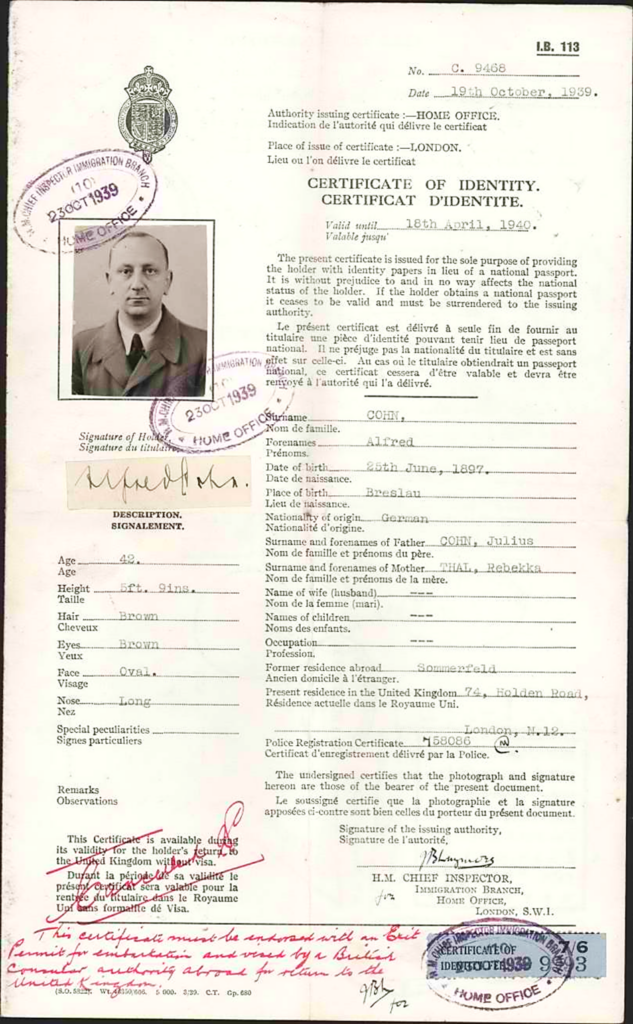 I.B. 113
No. C. 9468
Date 19th October, 1939.
Authority issuing certificate :—HOME OFFICE.
Indication de l'autorité qui délivre le certificat
Place of issue of certificate :—LONDON.
Lieu ou l'on délivre le certificat
CERTIFICATE OF IDENTITY.
CERTIFICAT D'IDENTITE.
Valid until 18th April, 1940.
Valable jusqu'
The present certificate is issued for the sole purpose of providing
the holder with identity papers in lieu of a national passport.
It is without prejudice to and in no way affects the national
status of the holder. If the holder obtains a national passport
it ceases to be valid and must be surrendered to the issuing
authority.
Le présent certificat est délivré à seule fin de fournir au
titulaire une pièce d'identité pouvant tenir lieu de passeport
national. Il ne préjuge pas la nationalité du titulaire et est sans
effet sur celle-ci. Au cas où le titulaire obtiendrait un passeport
national, ce certificat cessera d'être valable et devra être
renvoyé à l'autorité qui l'a délivré.
H.M. CHIEF INSPECTOR IMMIGRATION BRANCH
(10)
23 OCT 1939
HOME OFFICE
IMMIGRATION
23 OCT 1939
HOME OFFICE
Signature of Holder
Signature du titulaire
Alfred Cohn.
DESCRIPTION.
SIGNALEMENT.
Age 42.
Age
Height 5ft. 9ins.
Taille
Hair Brown
Cheveux
Eyes Brown
Yeux
Face Oval.
Visage
Nose Long
Nez
Special peculiarities
Signes particuliers
Remarks
Observations
This Certificate is available during
its validity for the holder's return to
the United Kingdom without visa.
Durant la période de sa validité le
présent certificat sera valable pour la
rentrée du titulaire dans le Royaume
Uni sans formalité de Visa.
Cancelled
Surname COHN,
Nom de famille.
Forenames Alfred
Prénoms.
Date of birth 25th June, 1897.
Date de naissance.
Place of birth Breslau
Lieu de naissance.
Nationality of origin German
Nationalité d'origine.
Surname and forenames of Father COHN, Julius
Nom de famille et prénoms du père.
Surname and forenames of Mother THAL, Rebekka
Nom de famille et prénoms de la mère.
Name of wife (husband) ---
Nom de la femme (mari).
Names of children ---
Noms des enfants.
Occupation ---
Profession.
Former residence abroad Sommerfeld
Ancien domicile à l'étranger.
Present residence in the United Kingdom 74, Holden Road,
Résidence actuelle dans le Royaume Uni.
London, N.12.
Police Registration Certificate 758086
Certificat d'enregistrement délivré par la Police.
The undersigned certifies that the photograph and signature
hereon are those of the bearer of the present document.
Le soussigné certifie que la photographie et la signature
apposées ci-contre sont bien celles du porteur du présent document.
Signature of the issuing authority,
Signature de l'autorité,
for
H.M. CHIEF INSPECTOR,
IMMIGRATION BRANCH,
HOME OFFICE,
LONDON, S.W.1.
This certificate must be endorsed with an Exit
Permit for embarkation and visaed by a British
Consular authority abroad for return to the
United Kingdom.
for
H.M. CHIEF INSPECTOR IMMIGRATION BRANCH
CERTIFICATE OF 7/6
1939
HOME OFFICE
5 000. 3/39. C.T. Gp. 680